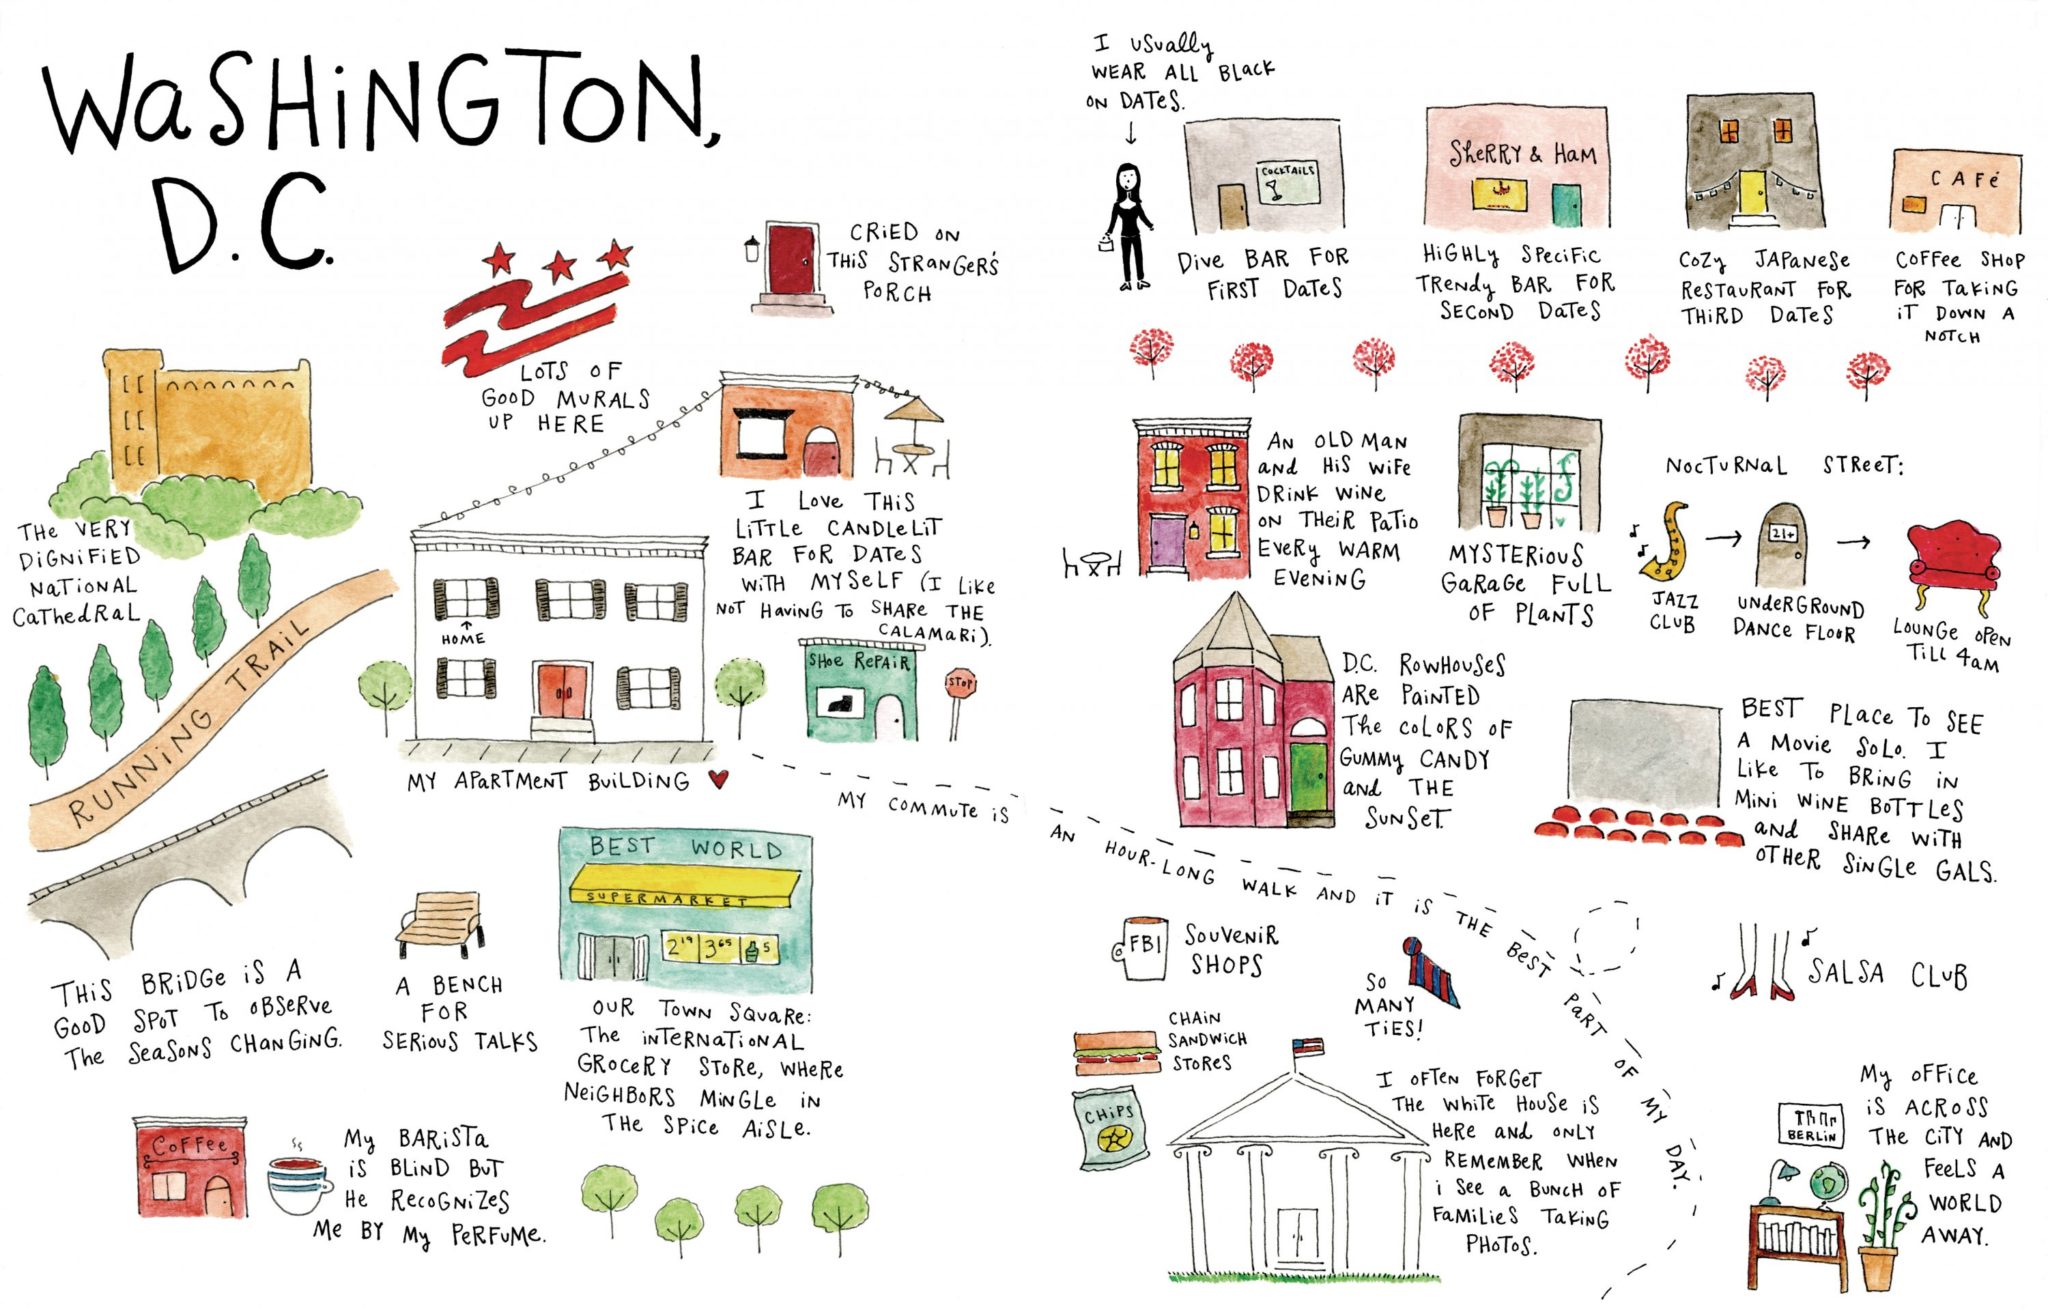 WASHINGTON,
D.C.
CRIED ON
THIS STRANGER'S
PORCH
LOTS OF
GOOD MURALS
UP HERE
THE VERY
DIGNIFIED
NATIONAL
CATHEDRAL
RUNNING TRAIL
I LOVE THIS
LITTLE CANDLELIT
BAR FOR DATES
WITH MYSELF (I LIKE
NOT HAVING TO SHARE THE
CALAMARI).
HOME
SHOE REPAIR
STOP
MY APARTMENT BUILDING
MY COMMUTE IS AN HOUR-LONG WALK AND IT IS THE BEST PART OF MY DAY.
THIS BRIDGE IS A
GOOD SPOT TO OBSERVE
THE SEASONS CHANGING.
A BENCH
FOR
SERIOUS TALKS
BEST WORLD
SUPERMARKET
2 19 3 65 5
OUR TOWN SQUARE:
THE INTERNATIONAL
GROCERY STORE, WHERE
NEIGHBORS MINGLE IN
THE SPICE AISLE.
COFFEE
MY BARISTA
IS BLIND BUT
HE RECOGNIZES
ME BY MY PERFUME.
I USUALLY
WEAR ALL BLACK
ON DATES.
COCKTAILS
DIVE BAR FOR
FIRST DATES
SHERRY & HAM
HIGHLY SPECIFIC
TRENDY BAR FOR
SECOND DATES
COZY JAPANESE
RESTAURANT FOR
THIRD DATES
CAFÉ
COFFEE SHOP
FOR TAKING
IT DOWN A
NOTCH
AN OLD MAN
AND HIS WIFE
DRINK WINE
ON THEIR PATIO
EVERY WARM
EVENING
MYSTERIOUS
GARAGE FULL
OF PLANTS
NOCTURNAL STREET:
JAZZ
CLUB
21+
UNDERGROUND
DANCE FLOOR
LOUNGE OPEN
TILL 4AM
D.C. ROWHOUSES
ARE PAINTED
THE COLORS OF
GUMMY CANDY
AND THE
SUNSET.
BEST PLACE TO SEE
A MOVIE SOLO. I
LIKE TO BRING IN
MINI WINE BOTTLES
AND SHARE WITH
OTHER SINGLE GALS.
FBI
SOUVENIR
SHOPS
SO
MANY
TIES!
SALSA CLUB
CHAIN
SANDWICH
STORES
CHIPS
I OFTEN FORGET
THE WHITE HOUSE IS
HERE AND ONLY
REMEMBER WHEN
I SEE A BUNCH OF
FAMILIES TAKING
PHOTOS.
MY OFFICE
IS ACROSS
THE CITY AND
FEELS A
WORLD
AWAY.
BERLIN